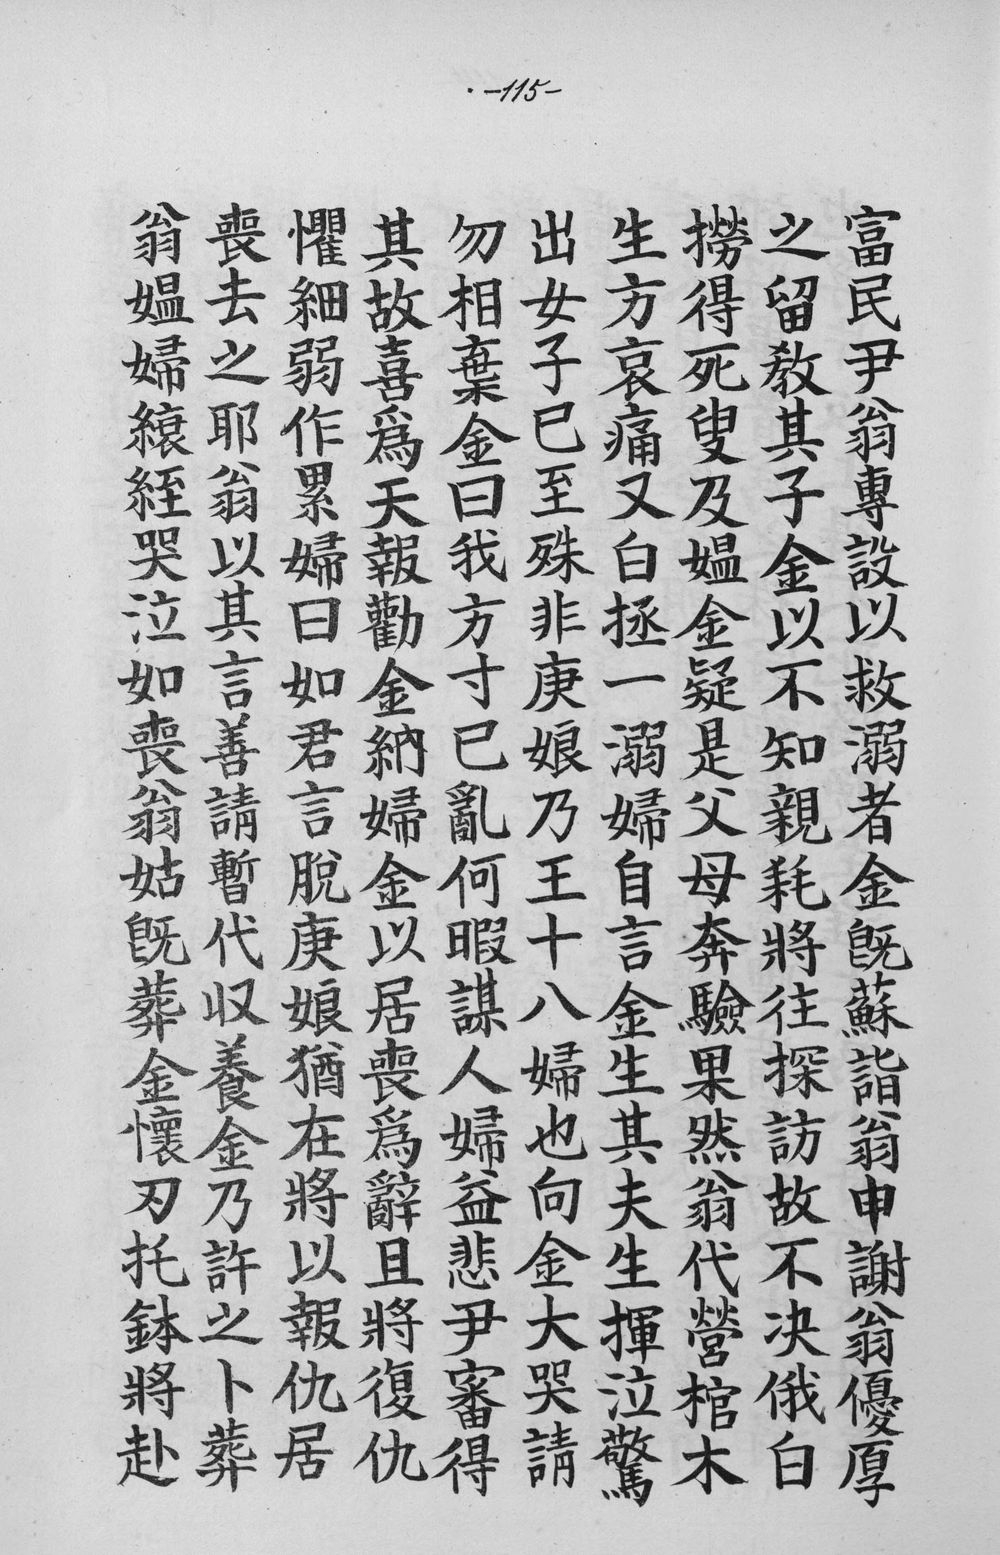 -115-
富民尹翁專設以救溺者金旣蘇詣翁申謝翁優厚
之留敎其子金以不知親耗將往探訪故不决俄白
撈得死叟及媼金疑是父母奔驗果然翁代營棺木
生方哀痛又白拯一溺婦自言金生其夫生揮泣驚
出女子已至殊非庚娘乃王十八婦也向金大哭請
勿相棄金曰我方寸已亂何暇謀人婦益悲尹審得
其故喜爲天報勸金納婦金以居喪爲辭且將復仇
懼細弱作累婦曰如君言脫庚娘猶在將以報仇居
喪去之耶翁以其言善請暫代収養金乃許之卜葬
翁媼婦縗絰哭泣如喪翁姑旣葬金懷刃托鉢將赴